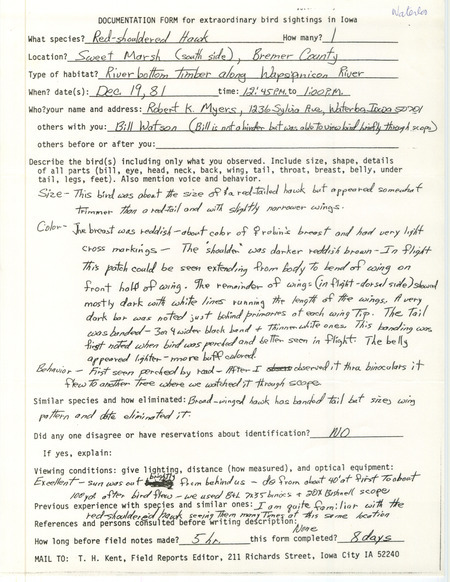 Waterloo
DOCUMENTATION FORM for extraordinary bird sightings in Iowa
What species? Red-shouldered Hawk How many? 1
Location? Sweet Marsh (south side), Bremer County
Type of habitat? River bottom timber along Wapsipinicon River
When? date(s): Dec. 19, 81 time: 12:45 P.M. to 1:00 P.M.
Who? your name and address: Robert K. Myers, 1236 Sylvia Ave, Waterloo Iowa 50701
others with you: Bill Watson (Bill is not a birder but was able to view bird briefly through scope)
others before or after you:
Describe the bird(s) including only what you observed. Include size, shape, details
of all parts (bill, eye, head, neck, back, wing, tail, throat, breast, belly, under
tail, legs, feet). Also mention voice and behavior.
Size - This bird was about the size of a red-tailed hawk but appeared somewhat
trimmer than a red-tail and with slightly narrower wings.
Color - The breast was reddish - about color of Robin's breast and had very light
cross markings - The "shoulder" was darker reddish brown - In flight
This patch could be seen extending from body to bend of wing on
front half of wing. The remainder of wings (in flight - dorsal side) showed
mostly dark with white lines running the length of the wings. A very
dark bar was noted just behind primaries at each wing Tip. The Tail
was banded - 3 or 4 wider black band + Thinner white ones. This banding was
first noted when bird was perched and better seen in flight. The belly
appeared lighter - more buff colored.
Behavior - First seen perched by road - After I observed it thru binoculars it
flew to another Tree where we watched it through scope
Similar species and how eliminated: Broad-winged hawk has banded tail but size, wing
pattern and date eliminated it.
Did any one disagree or have reservations about identification? NO
If yes, explain:
Viewing conditions: give lighting, distance (how measured), and optical equipment:
Excellent - sun was out brightly from behind us - dis from about 40' at first To about
100 yd after bird flew - we used B+L 7x35 binocs + 20X Bushnell scope
Previous experience with species and similar ones: I am quite familiar with the
red-shouldered hawk seeing them many Times at this same location
References and persons consulted before writing description:
None
How long before field notes made? 5 hr. this form completed? 8 days
MAIL TO: T. H. Kent, Field Reports Editor, 211 Richards Street, Iowa City IA 52240